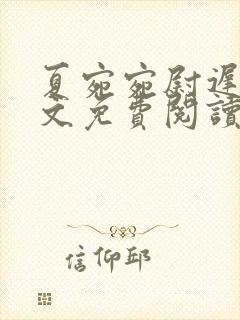 夏宛宛尉遲
文免費閱讀
信仰邱